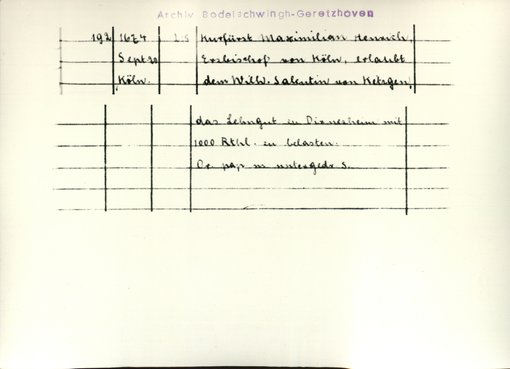 Archiv Bodelschwingh-Geretzhoven
192 1674 L.S Kurfürst Maximilian Henrich,
Sept 20 Erzbischof von Köln, erlaubt
Köln. dem Wilh. Salentin von Ketzgen,
das Lehngut zu Dirmesheim mit
1000 Rthl. zu belasten.
Or. pap m untergedr S.